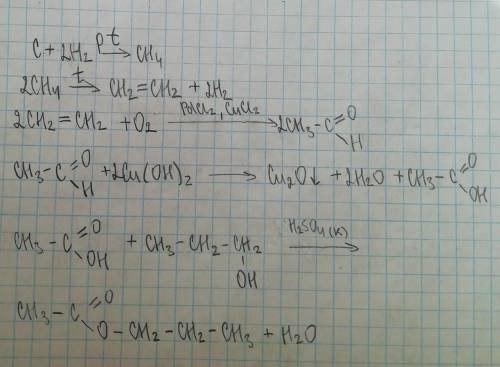 C + 2H₂ P t → CH₄
2CH₄ t → CH₂=CH₂ + 2H₂
2CH₂=CH₂ + O₂ PdCl₂, CuCl₂ → 2CH₃-C=O H
CH₃-C=O H + 2Cu(OH)₂ → Cu₂O↓ + 2H₂O + CH₃-C=O OH
CH₃-C=O OH + CH₃-CH₂-CH₂ OH H₂SO₄(к) →
CH₃-C=O O-CH₂-CH₂-CH₃ + H₂O